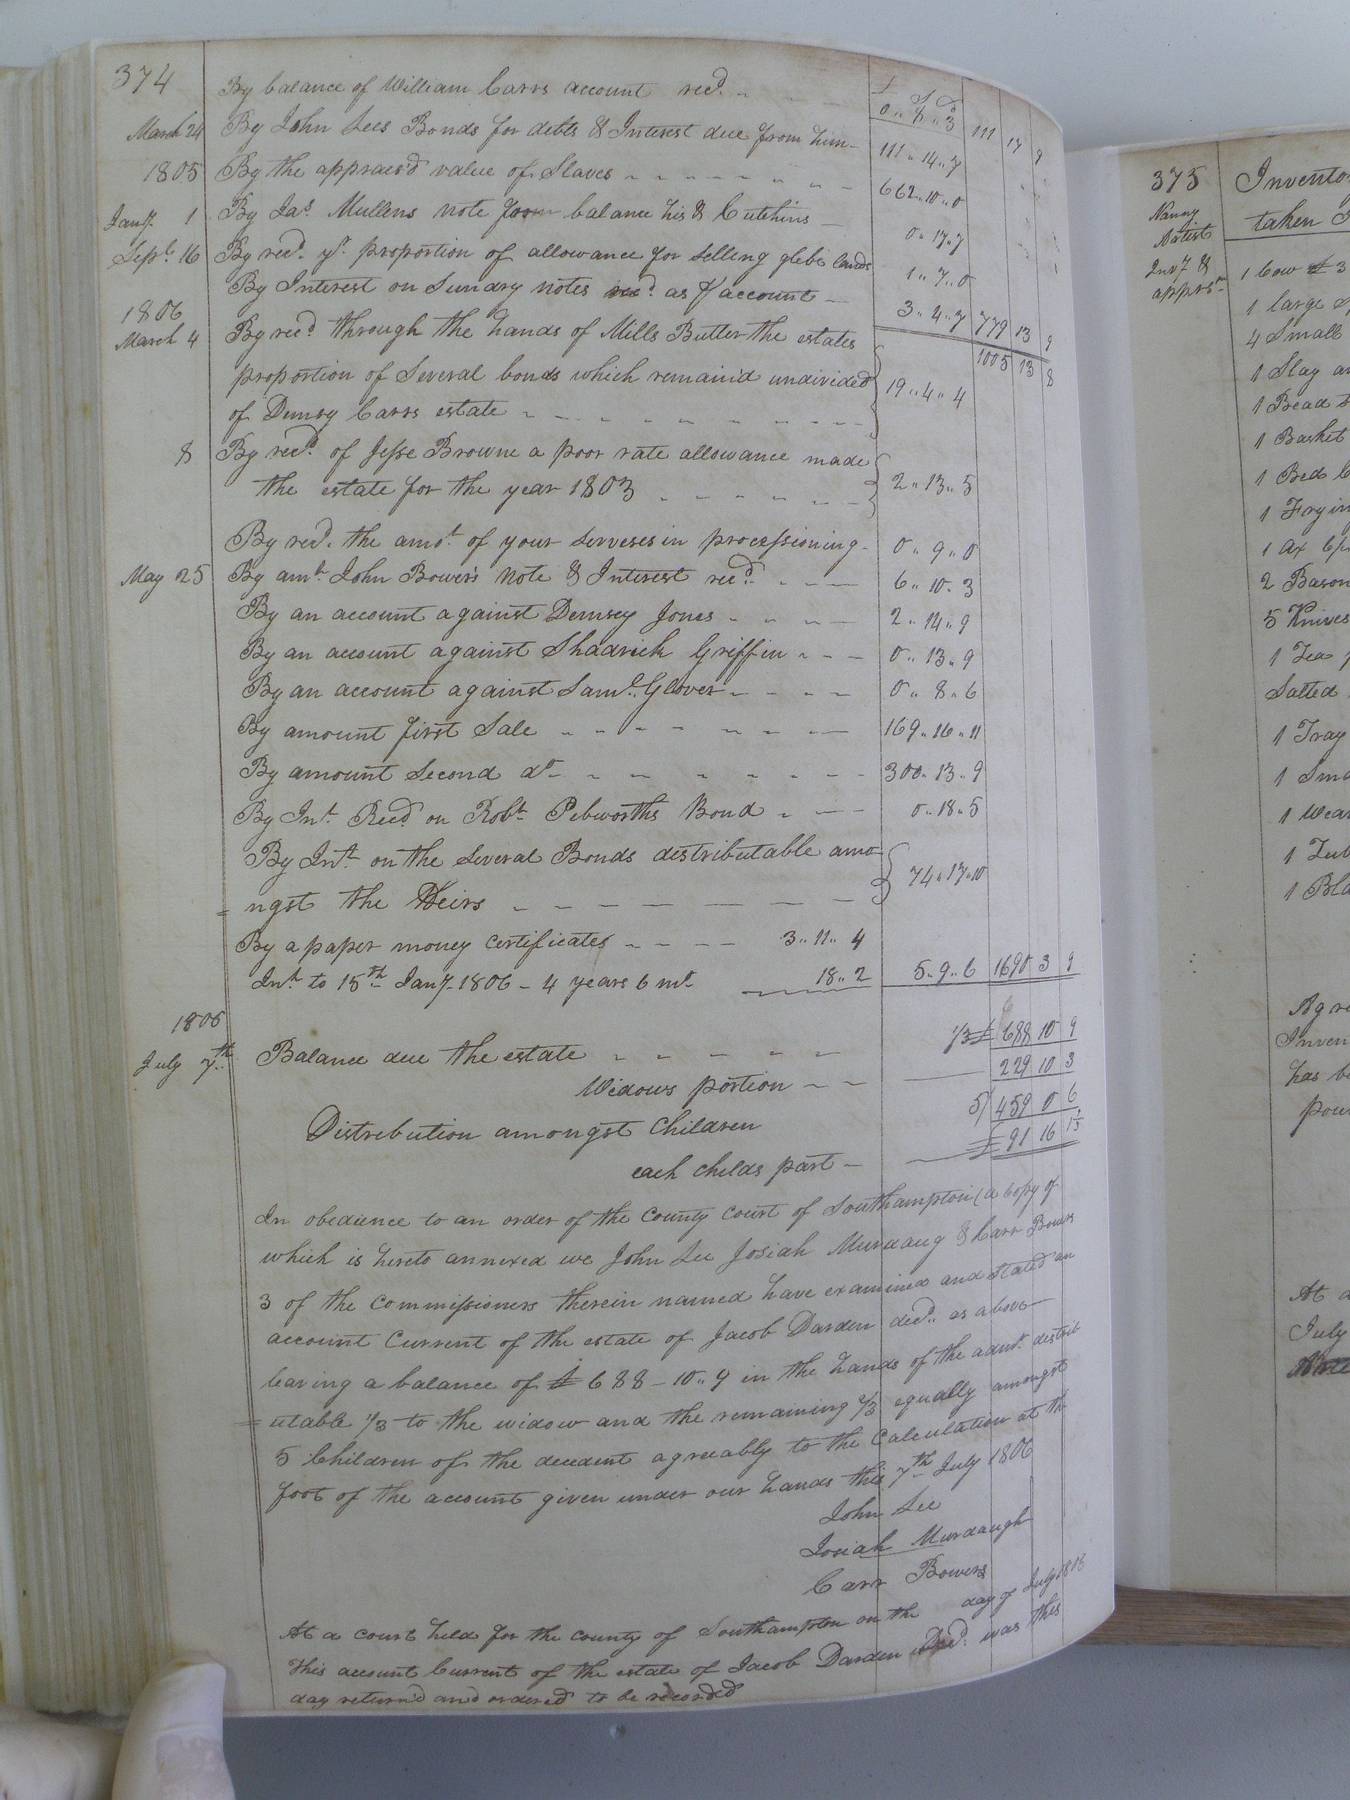 374
By balance of William Carrs account recd. £ S D
0 " " 3 111 17 9
March 24 By John Lees Bonds for debts & Interest due from him 111 " 14 " 7
1805 By the appraes'd value of Slaves 662 " 10 " 0
Jany. 1 By Jas. Mullens note from balance his & Cutchins 0 " 17 " 7
Sept. 16 By recd. yr. proportion of allowance for selling glebe lands 1 " 7 " 0
By Interest on Sundry notes recd. as ⅌ account 3 " 4 " 7 779 13 9
1005 13 8
1806
March 4 By recd. through the hands of Mills Butler the estates
proportion of Several bonds which remain'd undivided 19 " 4 " 4
of Demsy Carrs estate
8 By recd. of Jesse Browne a poor rate allowance made
the estate for the year 1803 2 " 13 " 5
By recd. the amot. of your serveses in processioning 0 " 9 " 0
May 25 By amt. John Bowers note & Interest recd. 6 " 10 " 3
By an account against Demsey Jones 2 " 14 " 9
By an account against Shadrick Griffin 0 " 13 " 9
By an account against Saml. Glover 0 " 8 " 6
By amount first Sale 169 " 16 " 11
By amount Second do. 300 " 13 " 9
By Int. Recd. on Robt. Pebworths Bond 0 " 18 " 5
By Int. on the Several Bonds destributable amo
= ngst the Heirs 74 " 17 " 10
By a paper money certificates 3 " 11 " 4
Int. to 15th Jany. 1806 - 4 years 6 mt. 18 " 2 5 " 9 " 6 1690 3 9
1806
July 7th Balance due the estate 1/3 £ 688 10 9
Widows portion 229 10 3
Distribution amongst Children 5/ 459 0 6
each childs part £ 91 16 1
In obedience to an order of the County Court of Southampton (a Copy of
which is hereto annexed we John Lee Josiah Murdaug & Carr Bowers
3 of the Commissioners therein named have examined and stated an
account Current of the estate of Jacob Darden decd. as above
leaving a balance of £ 688 - 10 " 9 in the hands of the admr. distrib
= utable 1/3 to the widow and the remaining 2/3 equally amongst
5 Children of the decedent agreeably to the Calculation at the
foot of the account given under our hands this 7th July 1806
John Lee
Josiah Murdaugh
Carr Bowers
At a court held for the county of Southampton on the day of July 1806
This account Current of the estate of Jacob Darden Decd. was this
day return'd and ordered to be recorded
375 Invento
Nancy
Inv'y &
taken
1 Cow & 3
1 large
4 Small
1 Slay an
1 Bead
1 Basket
1 Bed
1 Fryin
1 Ax
2 Bason
5 Knives
1 Tea
Salted
1 Tray
1 Sma
1 Wear
1 Tub
1 Bla
Agre
Inven
has be
poun
At a
July